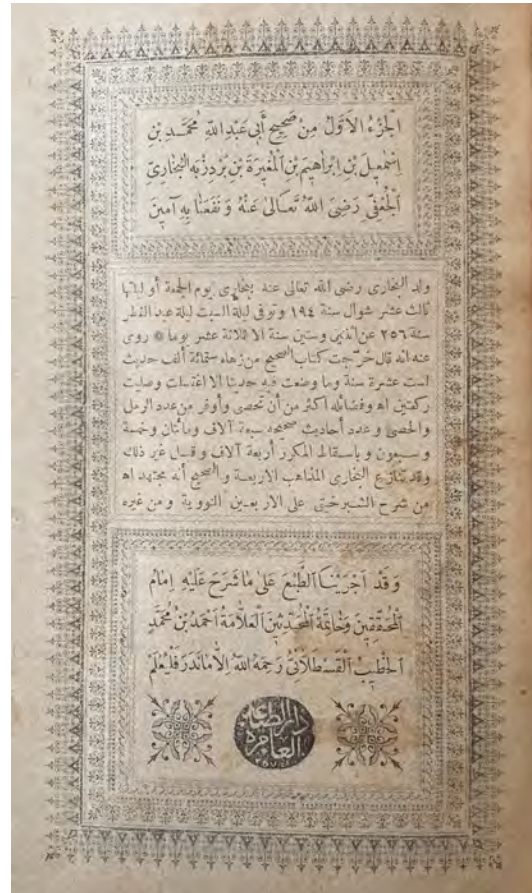 الجزء الاول من صحيح أبي عبد الله محمد بن
اسمعيل بن ابراهيم بن المغيرة بن بردزبه البخاري
الجعفي رضي الله تعالى عنه ونفعنا به آمين
ولد البخارى رضى الله تعالى عنه ببخارى يوم الجمعة أو ليلتها
ثالث عشر شوال سنة ١٩٤ وتوفى ليلة السبت ليلة عيد الفطر
سنة ٢٥٦ عن اثنين وستين سنة الا ثلاثة عشر يوما * روى
عنه انه قال خرّجت كتاب الصحيح من زهاء ستمائة ألف حديث
لست عشرة سنة وما وضعت فيه حديثا الا اغتسلت وصليت
ركعتين اه وفضائله اكثر من أن تحصى وأوفر من عدد الرمل
والحصى وعدد أحاديث صحيحه سبعة آلاف ومائتان وخمسة
وسبعون وباسقاط المكرر أربعة آلاف وقيل غير ذلك
وقد تنازع البخارى المذاهب الاربعة والصحيح أنه مجتهد اه
من شرح الشبرخيتى على الاربعين النووية ومن غيره
وقد اجرينا الطبع على ما شرح عليه امام
المحققين وخاتمة المحدثين العلامة احمد بن محمد
الخطيب القسطلاني رحمه الله الا ما ندر فليعلم
دار الطباعة
العامره